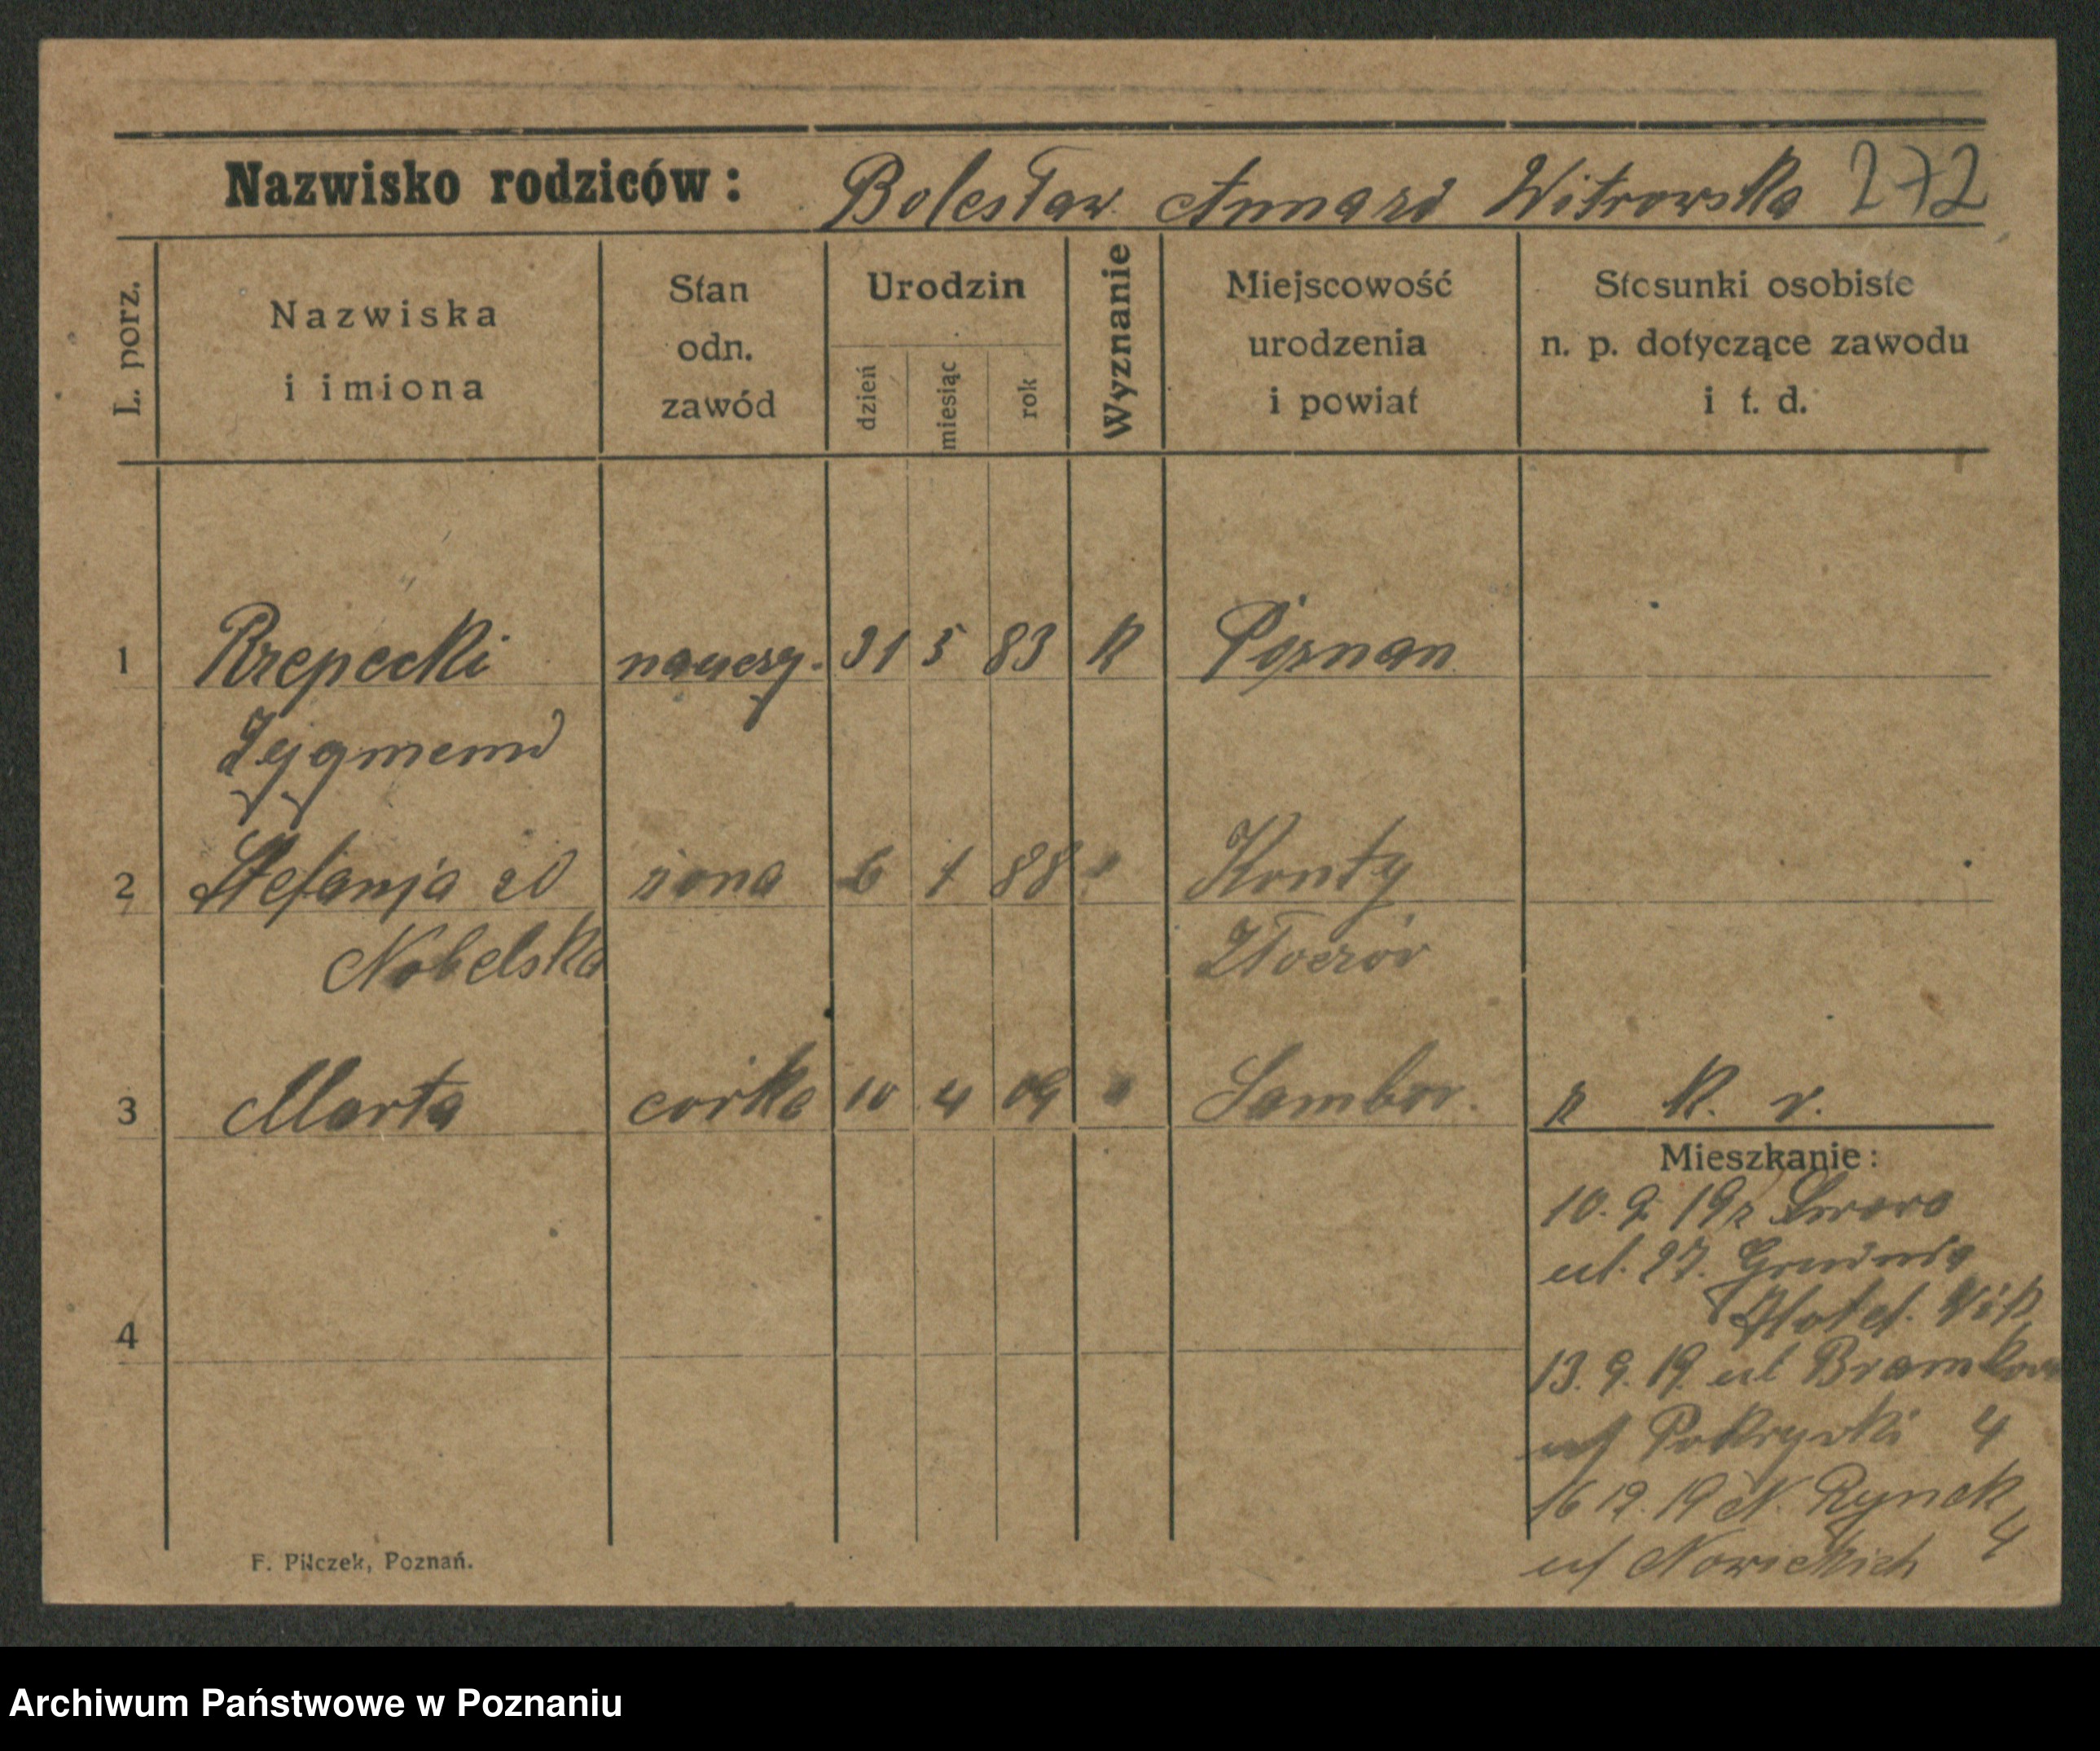 Nazwisko rodziców: Bolesław Anna zd Witrowska 272
L. porz.
Nazwiska i imiona
Stan odn. zawód
Urodzin
dzień
miesiąc
rok
Wyznanie
Miejscowość urodzenia i powiat
Stosunki osobiste n. p. dotyczące zawodu i t. d.
1 Rzepecki nauczy. 31 5 83 K Poznan
Zygmund
2 Stefanja zd żona 6 1 88 " Konty
Nobelska Złoczów
3 Marta corka 10 4 09 " Sambor z K. r.
Mieszkanie:
10. 9. 19 z Lwowa
ul. 27. Grudnia
Hotel. Vik
13. 9. 19. ul
u/ Pokrywki 4
4
16 12. 19 N. Rynek 4
u/ Nowickich
F. Pilczek, Poznań.
Archiwum Państwowe w Poznaniu